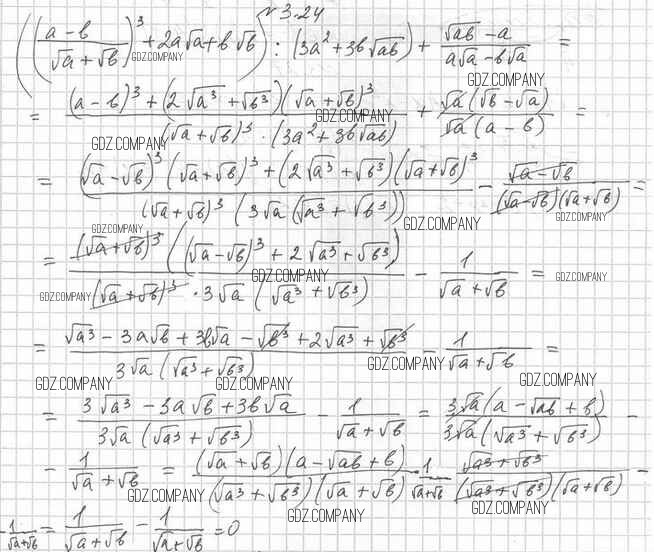 № 3.24
(((a-b)/(√a+√b))³ + 2a√a + b√b) : (3a² + 3b√ab) + (√ab - a)/(a√a - b√a) =
GDZ.COMPANY GDZ.COMPANY
= ((a-b)³ + (2√a³ + √b³)(√a+√b)³)/((√a+√b)³ · (3a² + 3b√ab)) + (√a(√b - √a))/(√a(a-b)) =
GDZ.COMPANY GDZ.COMPANY GDZ.COMPANY
= ((√a-√b)³(√a+√b)³ + (2√a³ + √b³)(√a+√b)³)/((√a+√b)³(3√a(√a³ + √b³))) - (√a-√b)/((√a-√b)(√a+√b)) =
GDZ.COMPANY GDZ.COMPANY GDZ.COMPANY
= ((√a+√b)³((√a-√b)³ + 2√a³ + √b³))/((√a+√b)³ · 3√a(√a³ + √b³)) - 1/(√a+√b) =
GDZ.COMPANY GDZ.COMPANY GDZ.COMPANY
= (√a³ - 3a√b + 3b√a - √b³ + 2√a³ + √b³)/(3√a(√a³ + √b³)) - 1/(√a+√b) =
GDZ.COMPANY GDZ.COMPANY GDZ.COMPANY GDZ.COMPANY
= (3√a³ - 3a√b + 3b√a)/(3√a(√a³ + √b³)) - 1/(√a+√b) = (3√a(a - √ab + b))/(3√a(√a³ + √b³)) -
- 1/(√a+√b) = ((√a+√b)(a - √ab + b))/((√a³ + √b³)(√a+√b)) - 1/(√a+√b) (√a³ + √b³)/((√a³ + √b³)(√a+√b)) -
GDZ.COMPANY GDZ.COMPANY GDZ.COMPANY
- 1/(√a+√b) = 1/(√a+√b) - 1/(√a+√b) = 0